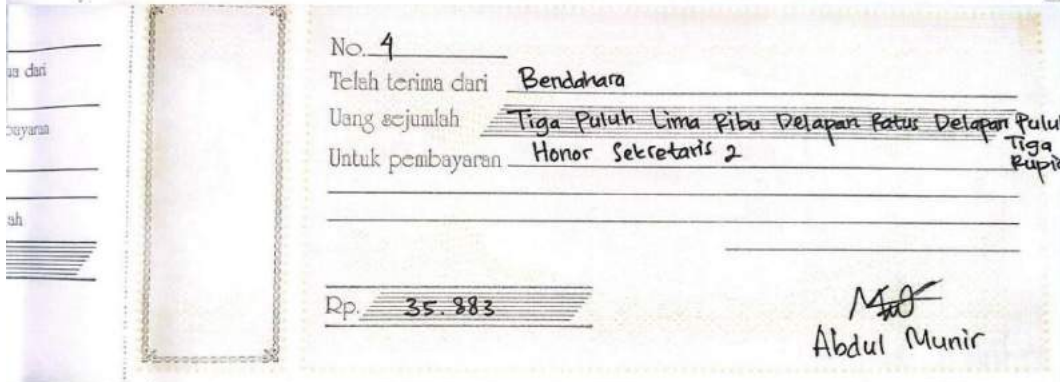 No. 4
Telah terima dari Bendahara
Uang sejumlah Tiga Puluh Lima Ribu Delapan Ratus Delapan Puluh
Tiga
Untuk pembayaran Honor Sekretaris 2
Rp. 35.883
Abdul Munir